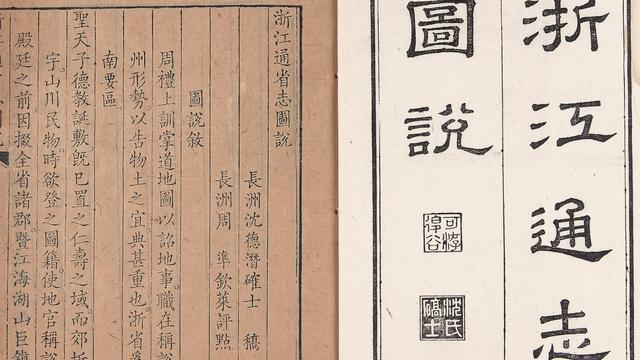 浙江通志
圖說
沈氏
確士
浙江通省志圖說
長洲沈德潛確士 稿
長洲周 準欽萊評點
圖說敘
周禮上訓掌道地圖以詔地事職在稱說
州形勢以告物土之宜典甚重也浙省爲
南要區
聖天子德教誕敷旣已置之仁壽之域而郊圻
宇山川民物時欲登之圖籍使地官稱說
殿廷之前因掇全省諸郡暨江海湖山巨鎮